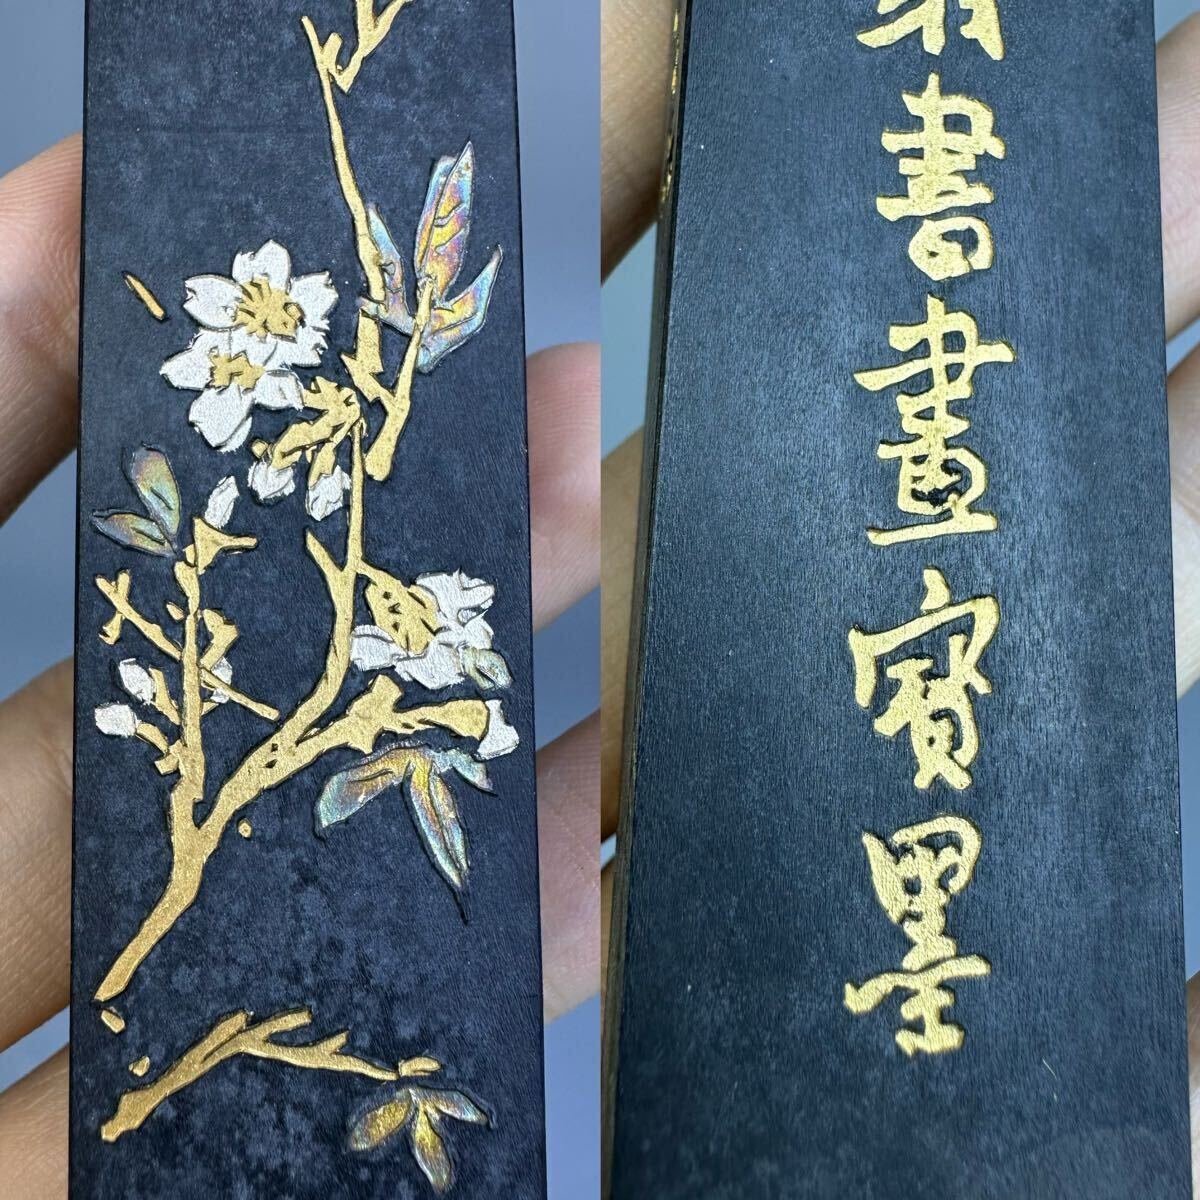 書畫寶墨